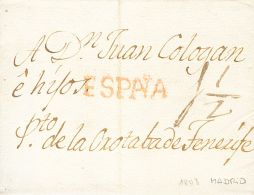 A Dⁿ Juan Cologan
ê hijos ESPAÑA 1 1/2
Pto de la Orotaba de Tenerife
1803 MADRID